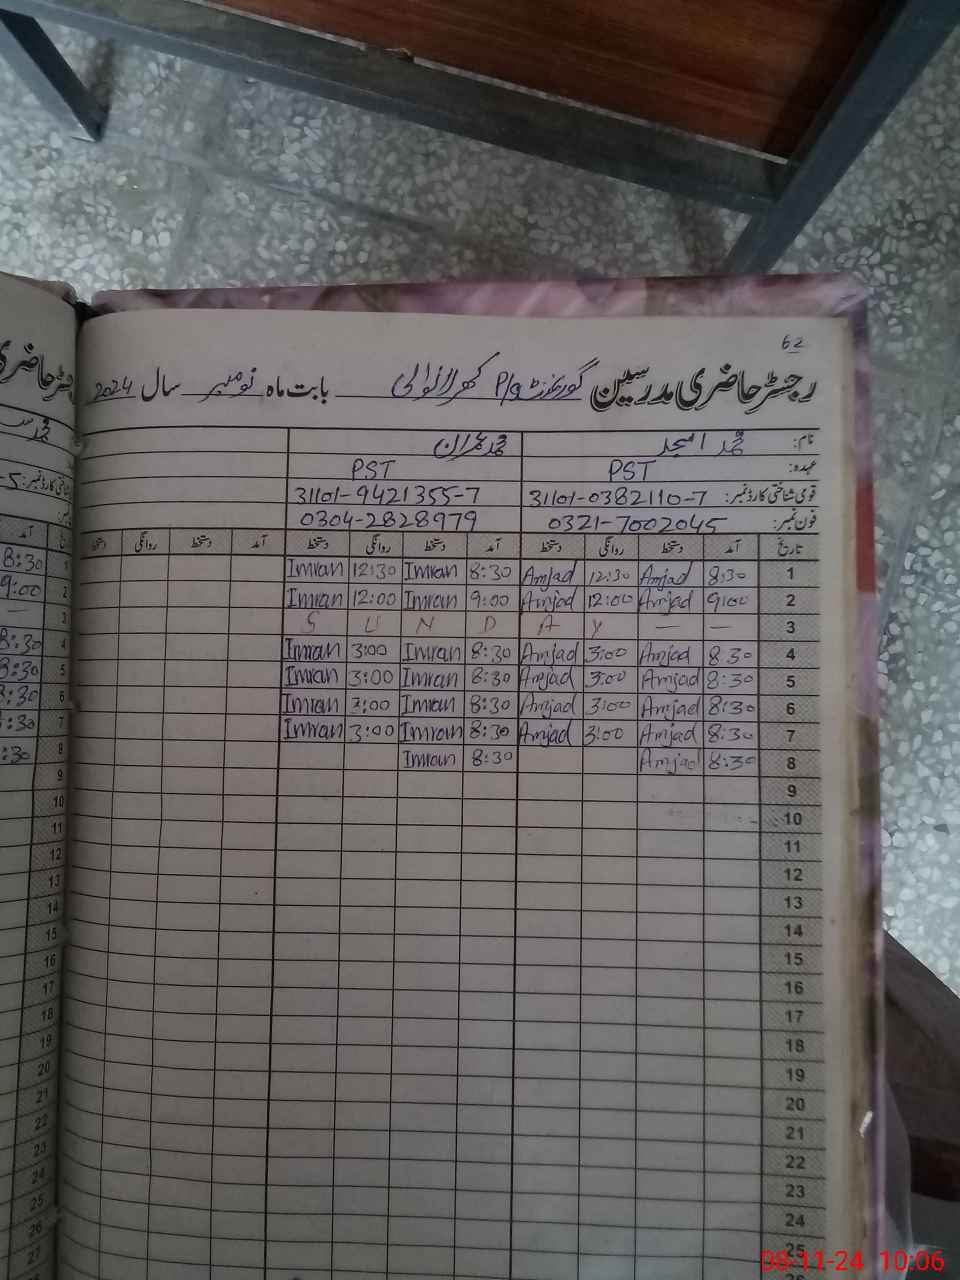 62
رجسٹر حاضری مدرسین گورنمنٹ P/S کھرلانوالی بابت ماہ نومبر سال 2024
نام: محمد امجد محمد عمران
عہدہ: PST PST
قومی شناختی کارڈ نمبر: 31101-0382110-7 31101-9421355-7
فون نمبر: 0321-7002045 0304-2828979
تاریخ آمد دستخط روانگی دستخط آمد دستخط روانگی دستخط آمد دستخط روانگی دستخط
1 8:30 Amjad 12:30 Amjad 8:30 Imran 12:30 Imran
2 9:00 Amjad 12:00 Amjad 9:00 Imran 12:00 Imran
3 — — S U N D A Y
4 8:30 Amjad 3:00 Amjad 8:30 Imran 3:00 Imran
5 8:30 Amjad 3:00 Amjad 8:30 Imran 3:00 Imran
6 8:30 Amjad 3:00 Amjad 8:30 Imran 3:00 Imran
7 8:30 Amjad 3:00 Amjad 8:30 Imran 3:00 Imran
8 8:30 Amjad 8:30 Imran
9
10
11
12
13
14
15
16
17
18
19
20
21
22
23
24
25
رجسٹر حاضری
آمد
8:30
2 9:00
3 —
4 8:30
5 8:30
6 8:30
7 :30
8 :30
9
10
11
12
13
14
15
16
17
18
19
20
21
22
23
24
25
26
27
08-11-24 10:06